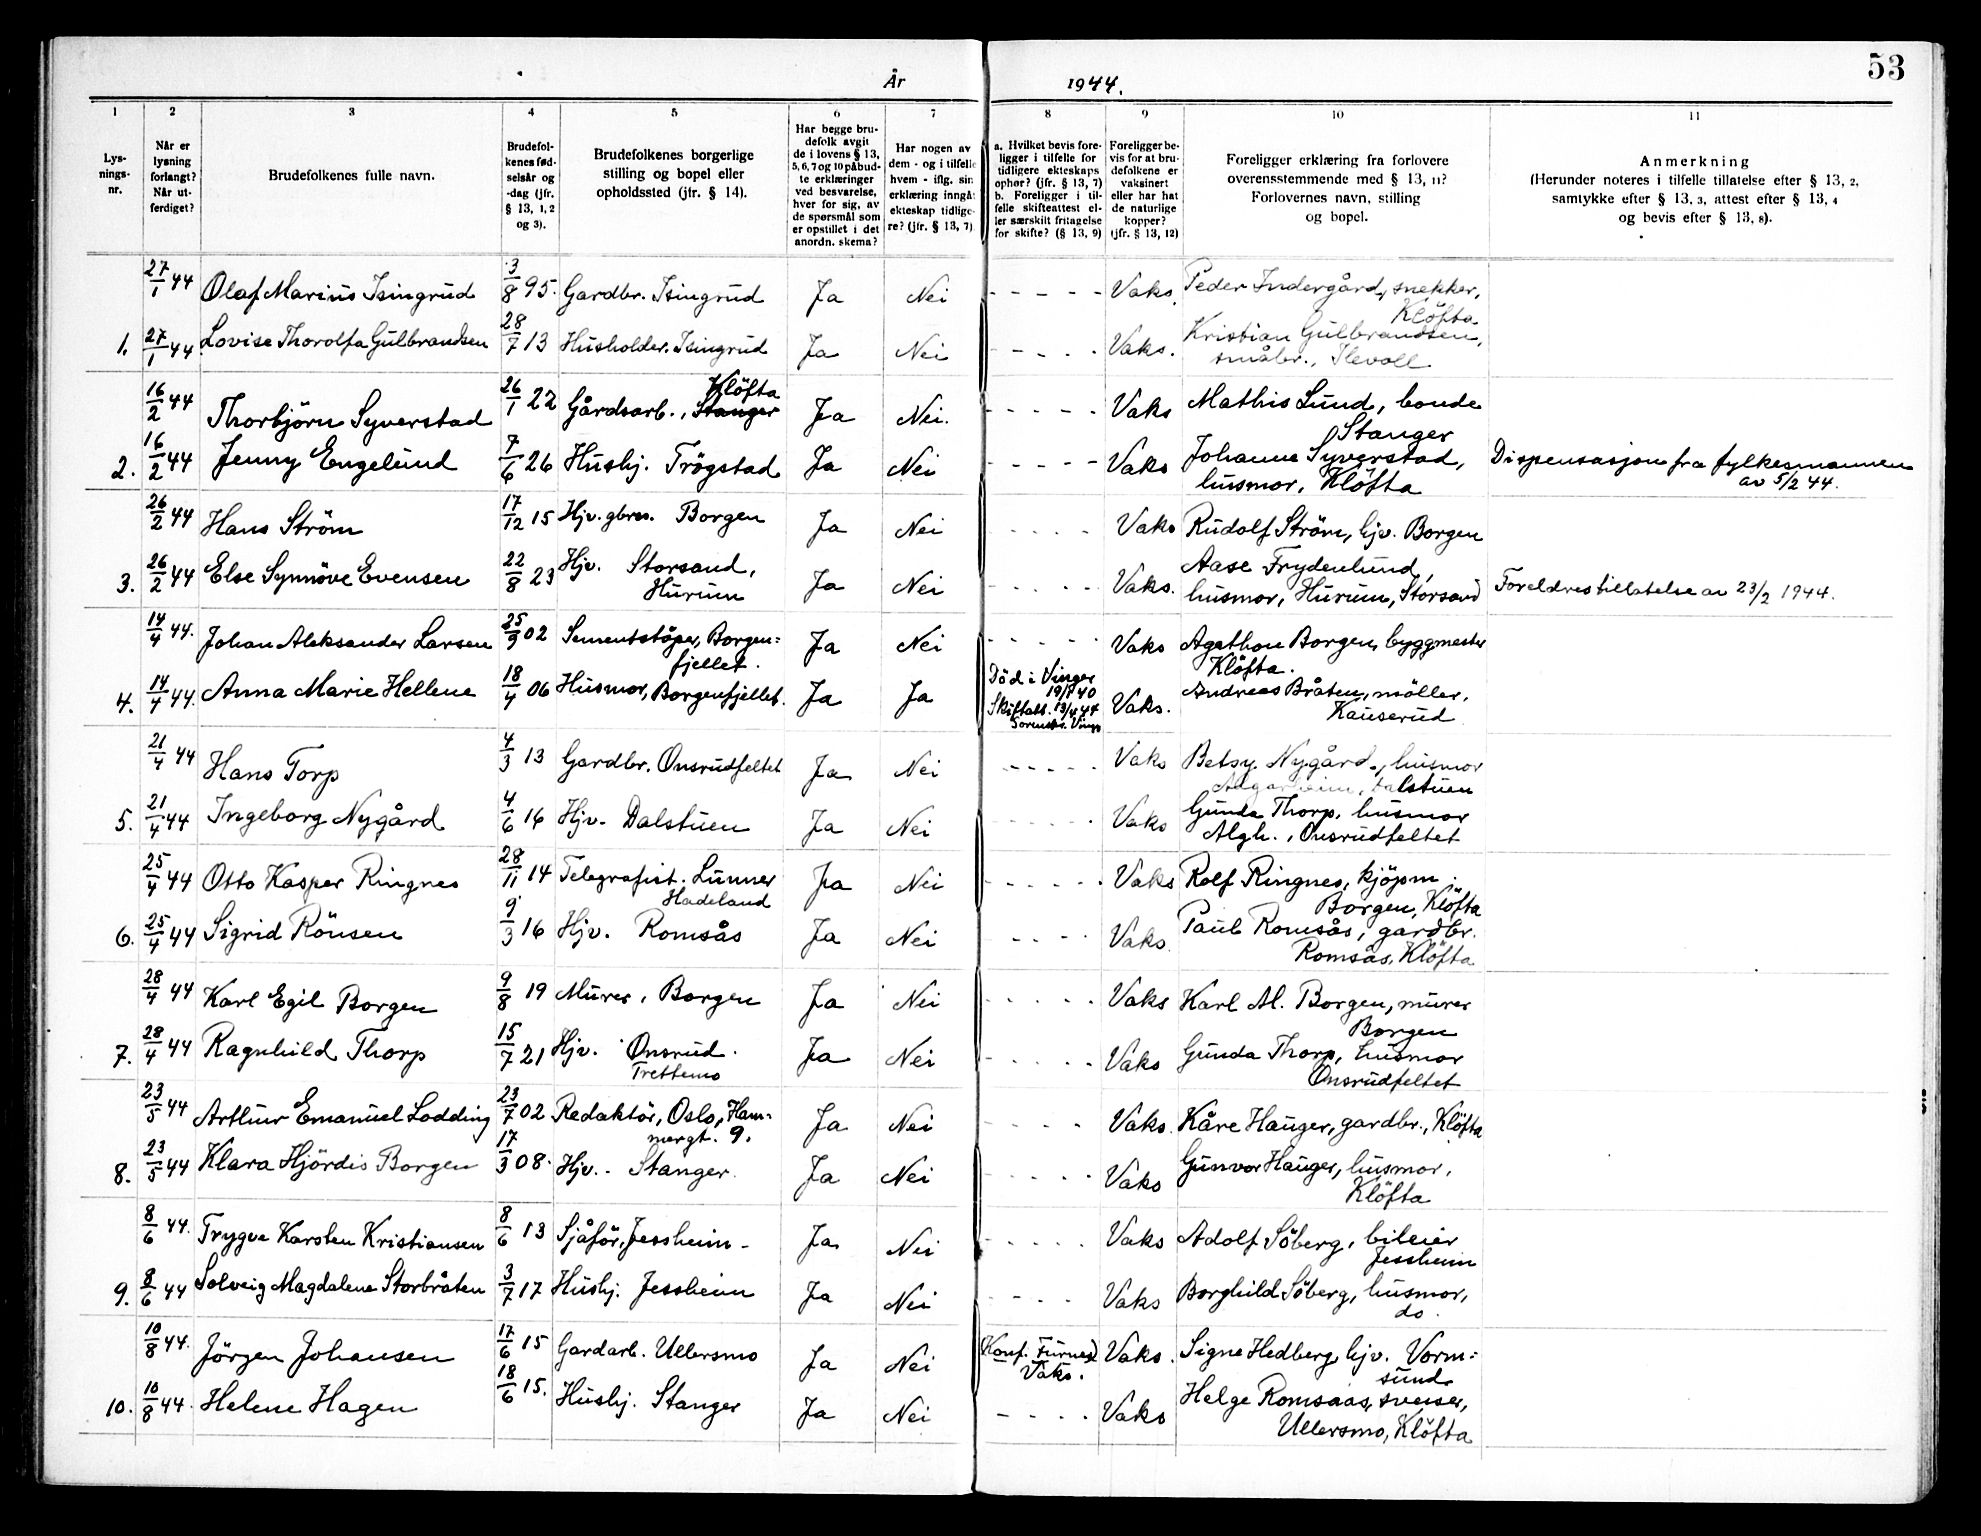 53
År 1944.
1 2 3 4 5 6 7 8 9 10 11
Lys-
nings-
nr.
Når er
lysning
forlangt?
Når ut-
ferdiget?
Brudefolkenes fulle navn.
Brudefol-
kenes fød-
selsår og
-dag (jfr.
§ 13, 1, 2
og 3).
Brudefolkenes borgerlige
stilling og bopel eller
opholdssted (jfr. § 14).
Har begge bru-
defolk avgit
de i lovens § 13,
5, 6, 7 og 10 påbud-
te erklæringer
ved besvarelse,
hver for sig, av
de spørsmål som
er opstillet i det
anordn. skema?
Har nogen av
dem - og i tilfelle
hvem - iflg. sin
erklæring inngå
ekteskap tidlige-
re? (jfr. § 13, 7)
a. Hvilket bevis fore-
ligger i tilfelle for
tidligere ekteskaps
ophør? (jfr. § 13, 7)
b. Foreligger i til-
felle skifteattest el-
ler særskilt fritagelse
for skifte? (§ 13, 9)
Foreligger be-
vis for at bru-
defolkene er
vaksinert
eller har hat
de naturlige
kopper?
(jfr. § 13, 12)
Foreligger erklæring fra forlovere
overensstemmende med § 13, 11?
Forlovernes navn, stilling
og bopel.
Anmerkning
(Herunder noteres i tilfelle tillatelse efter § 13, 2,
samtykke efter § 13, 3, attest efter § 13, 4
og bevis efter § 13, 8).
27/1 44 Olaf Marius Isingrud 3/8 95. Gardbr. Isingrud Ja Nei - - - - - Vaks. Peder Indergård, snekker,
Klöfta.
1. 27/1 44 Lovise Thorolfa Gulbrandsen 28/7 13 Husholder. Isingrud Ja Nei - - - - Vaks. Kristian Gulbrandsen,
småbr., Ilevoll
16/2 44 Thorbjörn Syverstad 26/1 22 Gårdsarb., Stanger Klöfta Ja Nei. - - - - - Vaks Mathis Lund, bonde
Stanger
2. 16/2 44 Jenny Engelund 7/6 26 Hushj. Trögstad Ja Nei - - - - - Vaks Johanne Syverstad,
husmor, Klöfta
Dispensasjon fra fylkesmannen
av 5/2 44.
26/2 44 Hans Ström 17/12 15 Hjv. gbrs. Borgen Ja Nei - - - - Vaks Rudolf Ström, hjv. Borgen
3. 26/2 44 Else Synnöve Evensen 22/8 23 Hjv. Storsand,
Hurum Ja Nei - - - - Vaks. Aase Frydenlund,
husmor, Hurum, Storsand
Foreldrestillatelse av 23/2 1944.
14/4 44. Johan Aleksander Larsen 25/9 02 Sementstöper, Borgen=
fjellet. Ja Nei - - - - - Vaks Agathon Borgen, byggmester
Klöfta.
4. 14/4 44. Anna Marie Hellene 18/4 06 Husmor, Borgenfjellet. Ja Ja Död i Vinger
19/1 40
Skiftatt. 13/4 44
Vaks. Andreas Bråten, möller,
Kauserud
21/4 44 Hans Torp 4/3 13 Gardbr. Onsrudfeltet Ja Nei - - - - - Vaks Betsy Nygård, husmor
Dalstuen
5. 21/4 44 Ingeborg Nygård 4/6 16 Hjv. Dalstuen Ja Nei - - - - - Vaks Gunda Thorp, husmor
Algh., Onsrudfeltet
25/4 44 Otto Kasper Ringnes 28/11 14 Telegrafist. Lunner
Hadeland Ja Nei - - - - - Vaks Rolf Ringnes, kjöpm.
Borgen, Klöfta
6. 25/4 44 Sigrid Rönsen 9/3 16 Hjv. Romsås Ja Nei - - - - Vaks Paul Romsås, gardbr.
Romsås, Klöfta
28/4 44 Karl Egil Borgen 9/8 19 Murer, Borgen Ja Nei - - - - - Vaks Karl Al. Borgen, murer
Borgen
7. 28/4 44 Ragnhild Thorp 15/7 21 Hjv. Onsrud.
Trettemo Ja Nei - - - - - Vaks Gunda Thorp, husmor
Onsrudfeltet
23/5 44 Arthur Emanuel Lodding 23/7 02 Redaktör, Oslo, Ham-
mergt. 9. Ja Nei - - - - Vaks. Kåre Hauger, gardbr., Klöfta
8. 23/5 44 Klara Hjördis Borgen 17/3 08. Hjv. - Stanger. Ja Nei - - - - - Vaks Gunvor Hauger, husmor,
Klöfta
8/6 44. Trygve Karsten Kristiansen 8/6 13 Sjåför, Jessheim - Ja Nei - - - - - Vaks Adolf Söberg, bileier
Jessheim
9. 8/6 44 Solveig Magdalene Storbråten 3/7 17 Hushj. Jessheim Ja Nei - - - - Vaks Borghild Söberg, husmor,
do.
10/8 44. Jörgen Johansen 17/6 15 Gardarb. Ullersmo Ja Nei (Konf. Furnes)
Vaks. Vaks. Signe Hedberg hjv. Vorm=
sund
10. 10/8 44. Helene Hagen 18/6 15. Hushj. Stanger Ja Nei - - - - Vaks Helge Romsaas, sveiser,
Ullersmo, Klöfta